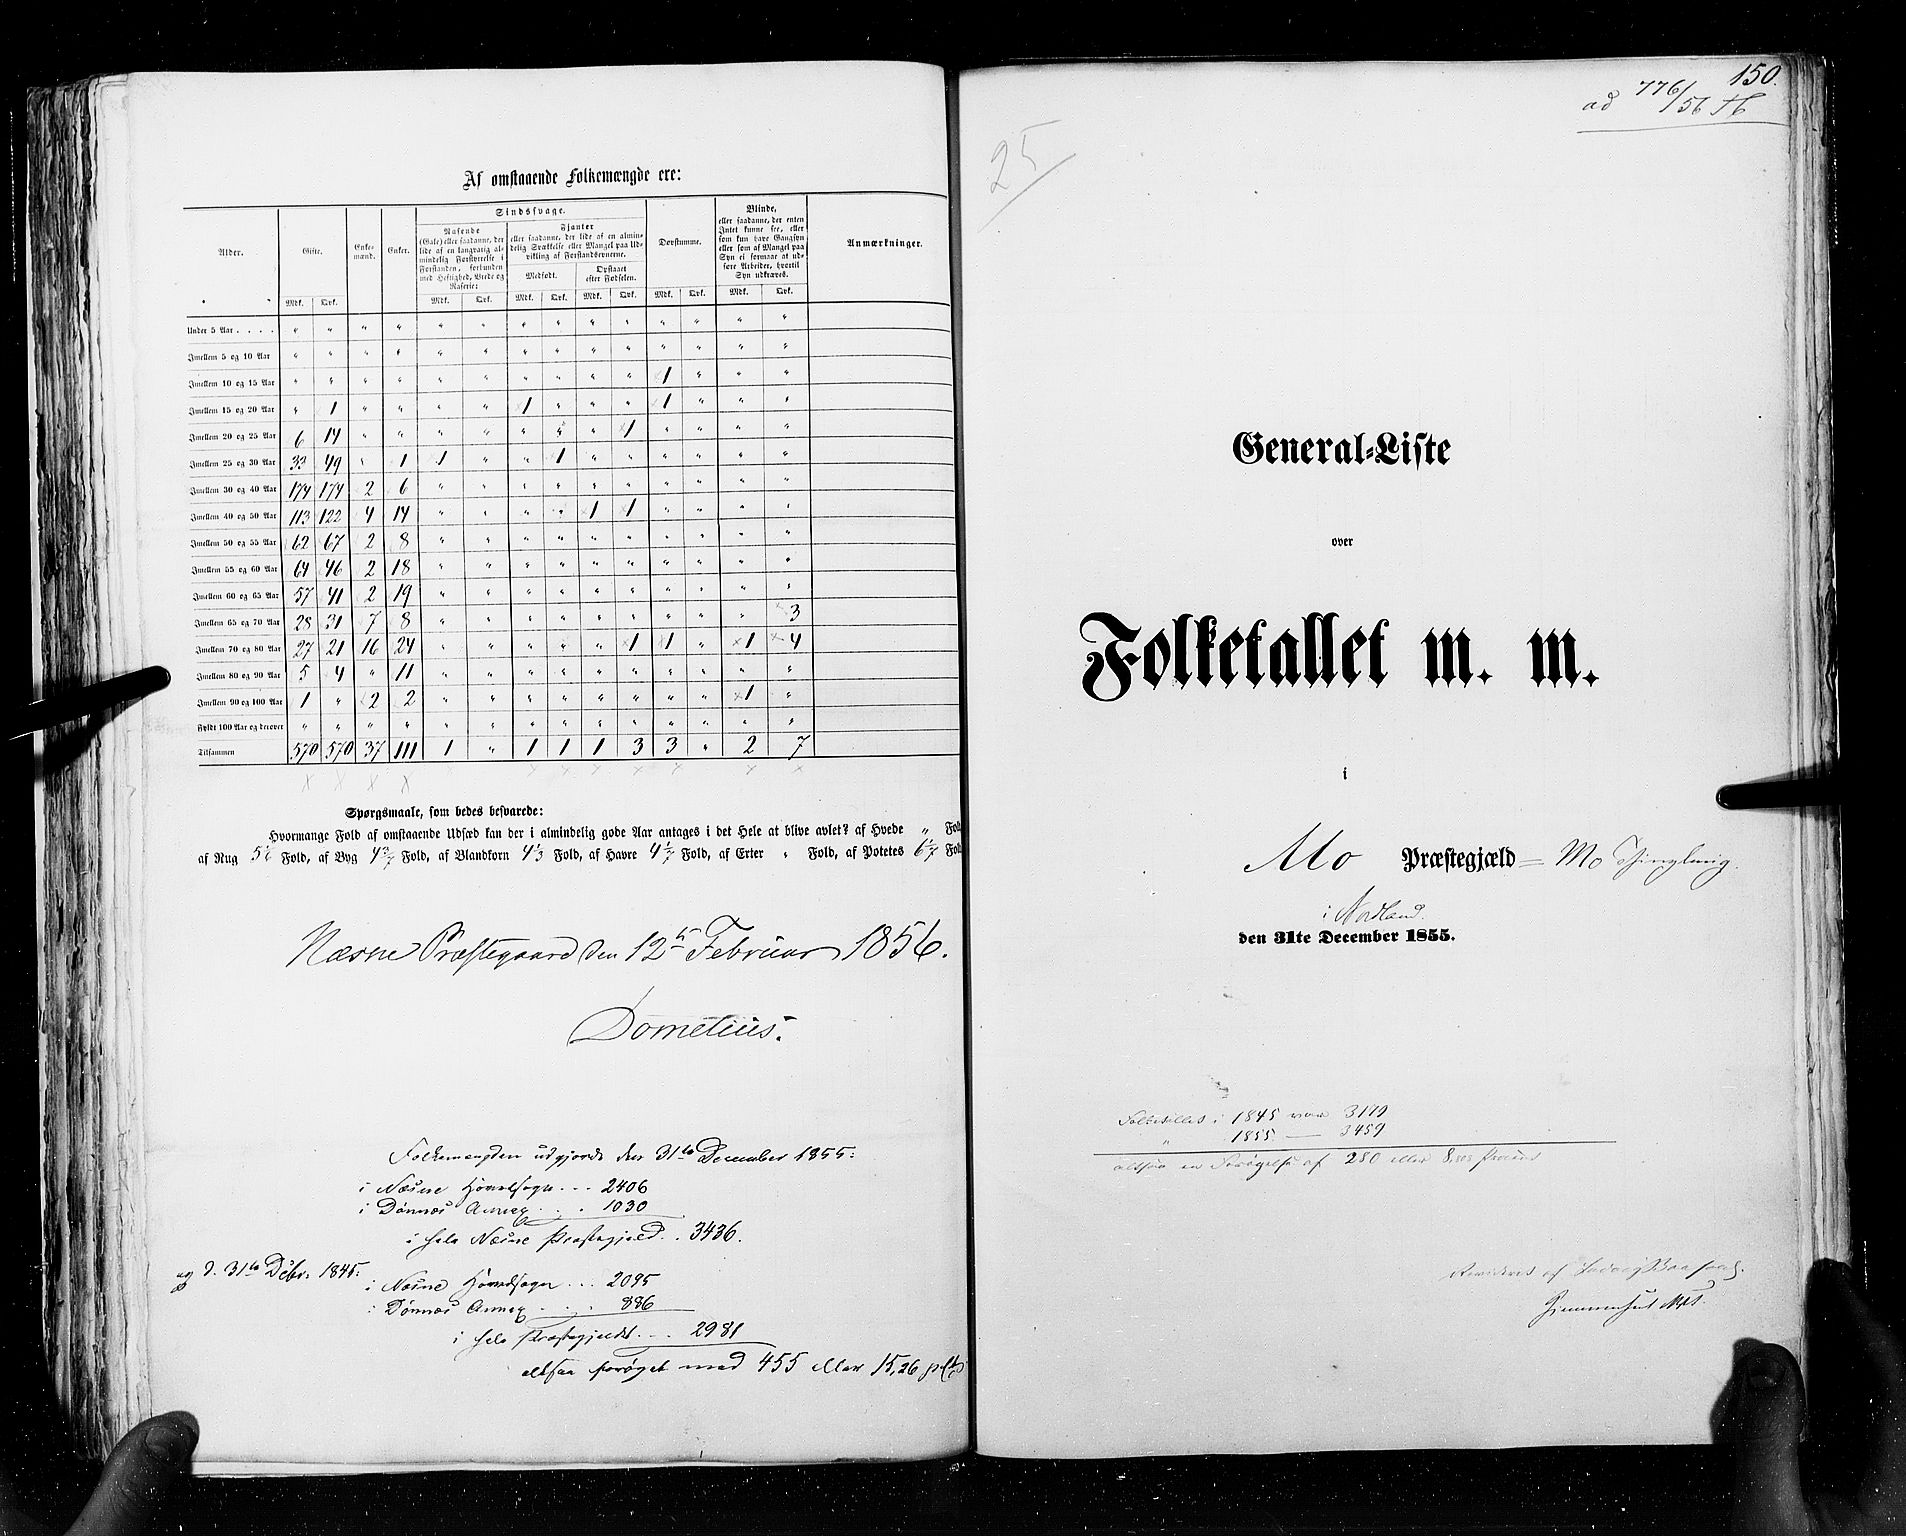 Af omstaaende Folkemængde ere:
Alder. Gifte. Enkemænd. Enker. Sindssvage. Døvstumme. Blinde, Anmærkninger.
Rasende (Gale) eller saadanne, der lide af en langvarig almindelig Forstyrrelse i Forstanden, forbunden med Heftighed, Vrede og Raserie:
Fjanter eller saadanne, der lide af en almindelig Svækkelse eller Mangel paa Udvikling af Forstandsevnerne.
Medfødt. Opstaaet efter Fødselen.
eller saadanne, der enten Intet kunne see, eller som kun have Gangsyn eller som af Mangel paa Syn ei formaae at udføre Arbeider, hvortil Syn udkræves.
Mdk. Qvk. Mdk. Qvk. Mdk. Qvk. Mdk. Qvk. Mdk. Qvk. Mdk. Qvk.
Under 5 Aar . . . . " " " " " " " " " " " " " "
Imellem 5 og 10 Aar " " " " " " " " " " " " " "
Imellem 10 og 15 Aar " " " " " " " " " " 1 " " "
Imellem 15 og 20 Aar " 1 " " " " 1 " " " 1 " " "
Imellem 20 og 25 Aar 6 14 " " " " " " " 1 " " " "
Imellem 25 og 30 Aar 33 49 " 1 1 " " 1 " " " " " "
Imellem 30 og 40 Aar 174 174 2 6 " " " " " " " " " "
Imellem 40 og 50 Aar 113 122 4 14 " " " " 1 1 " " " "
Imellem 50 og 55 Aar 62 67 2 8 " " " " " " " " " "
Imellem 55 og 60 Aar 64 46 2 18 " " " " " " " " " "
Imellem 60 og 65 Aar 57 41 2 19 " " " " " " " " " "
Imellem 65 og 70 Aar 28 31 7 8 " " " " " " " " " 3
Imellem 70 og 80 Aar 27 21 16 24 " " " " " 1 1 " 1 4
Imellem 80 og 90 Aar 5 4 " 11 " " " " " " " " " "
Imellem 90 og 100 Aar 1 " 2 2 " " " " " " " " 1 "
Fyldt 100 Aar og derover " " " " " " " " " " " " " "
Tilsammen 570 570 37 111 1 " 1 1 1 3 3 " 2 7
Spørgsmaale, som bedes besvarede:
Hvormange Fold af omstaaende Udsæd kan der i almindelig gode Aar antages i det Hele at blive avlet? af Hvede " Fold
af Rug Fold, af Byg Fold, af Blandkorn 4 1/3 Fold, af Havre Fold, af Erter " Fold, af Potetes Fold
Næsne Præstegaard den 12te Februar 1856.
Dometius.
Folkemængden udgjorde den 31te December 1855:
i Næsne Hovedsogn . . . 2406
i Dønnes Annex . . . 1030
i hele Næsne Præstegjeld . . 3436.
og d. 31te Debr. 1845:
i Næsne Hovedsogn . . . 2095
i Dønnes Annex . . . 886
i hele Præstegjeldet . . . 2981
altsaa forøget med 455 eller 15,26 pCt
150.
ad 776/56
25
General-Liste
over
Folketallet m. m.
i
Mo Præstegjæld = Mo Thinglaug
i Nordland.
den 31te December 1855.
Folketallet i 1845 var 3179
" 1855 — 3459
altsaa en Forøgelse af 280 eller 8,808 Procent
Revideret af